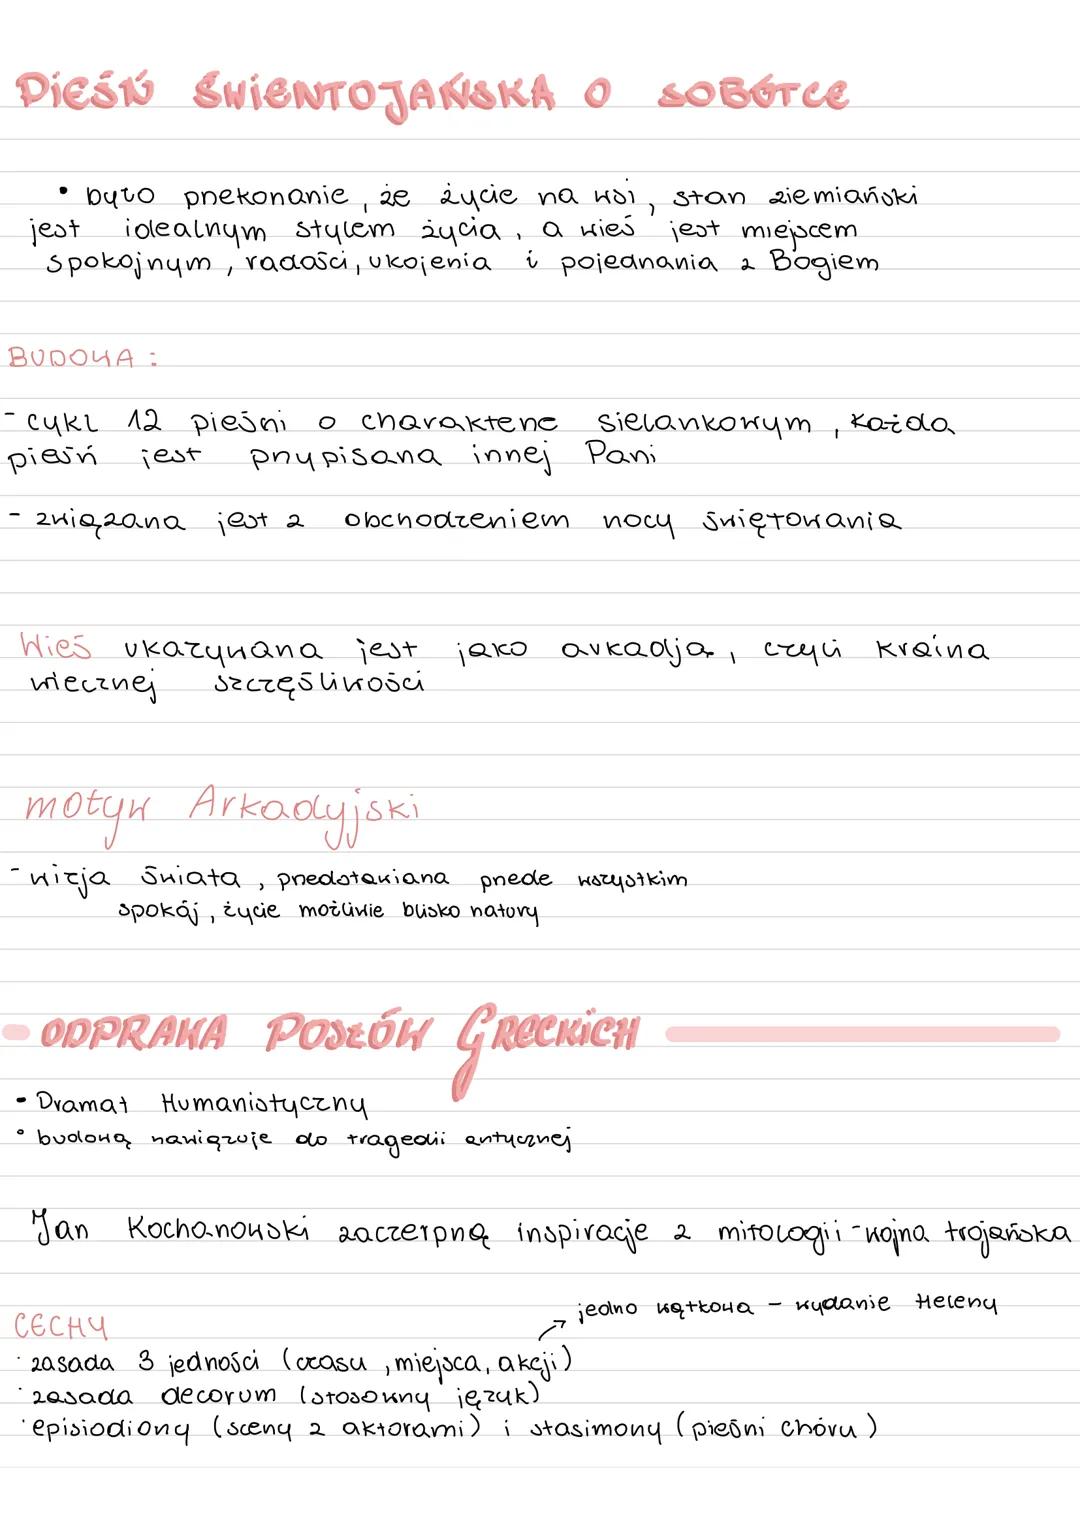 PIEŚŃ ŚWIENTOJAŃSKA O SOBÓTCE
• było przekonanie, że życie na wsi, stan ziemiański
jest idealnym stylem życia, a wieś jest miejscem
spokojnym, radości, ukojenia i pojednania z Bogiem
BUDOWA:
- cykl 12 pieśni o charakterze sielankowym, każda
pieśń jest przypisana innej Pani
- związana jest z obchodzeniem nocy świętowania
Wieś ukazywana jest jako arkadja, czyli kraina
wiecznej szczęśliwości
motyw Arkadyjski
- wizja świata, przedstawiana przede wszystkim
spokój, życie możliwie blisko natury
ODPRAWA POSŁÓW GRECKICH
• Dramat Humanistyczny
• budową nawiązuje do tragedii antycznej
Jan Kochanowski zaczerpną inspiracje z mitologii - wojna trojańska
jedno wątkowa - wydanie Heleny
CECHY
• zasada 3 jedności (czasu, miejsca, akcji) →
• zasada decorum (stosowny język)
• episiodiony (sceny z aktorami) i stasimony (pieśni chóru)